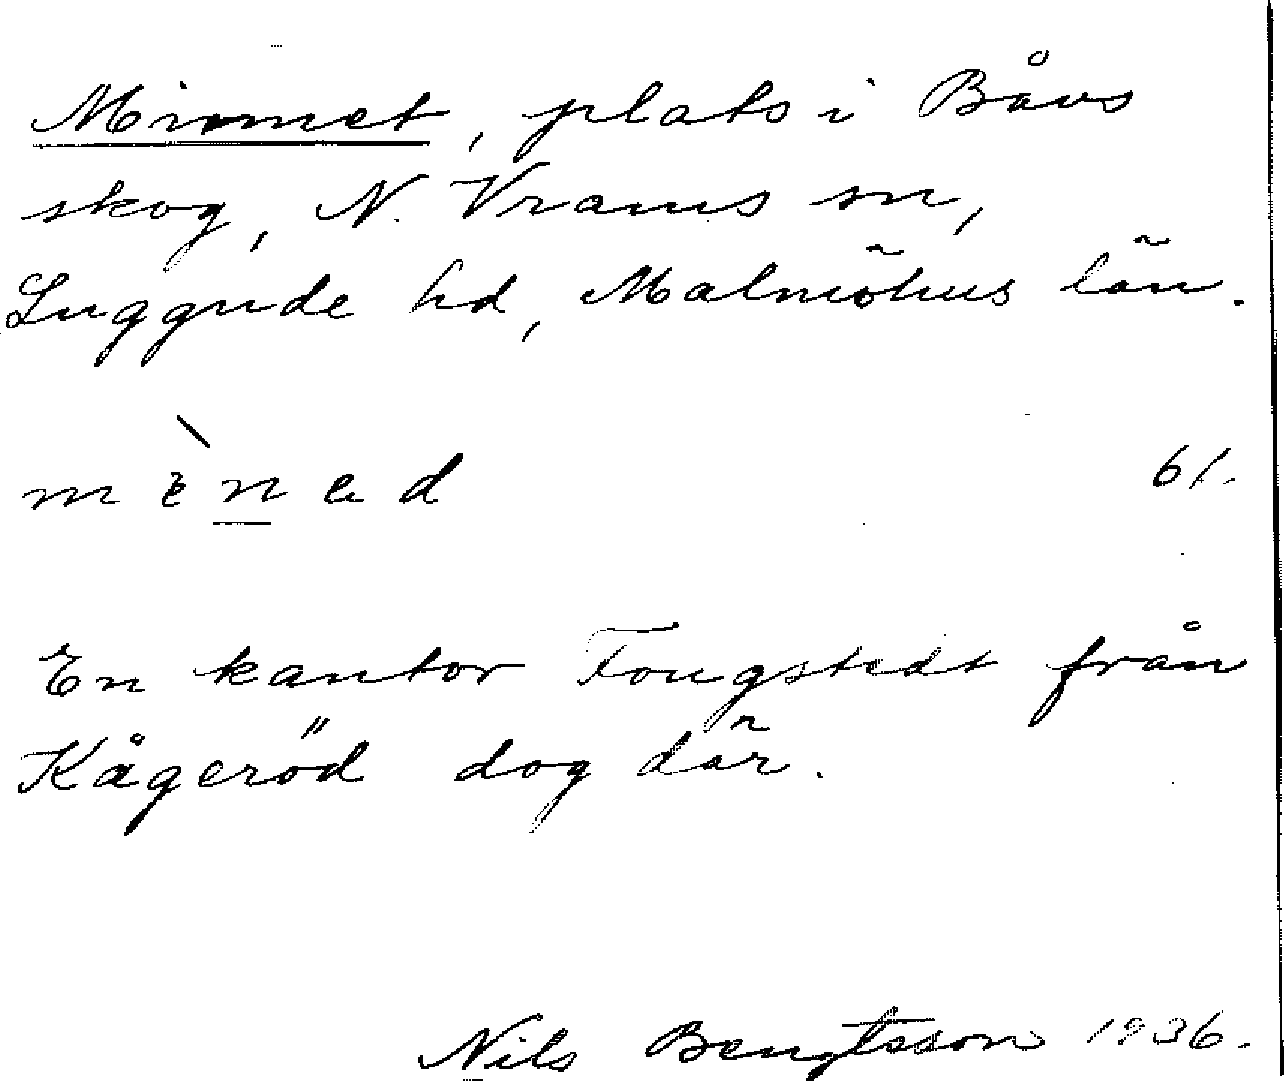 Minnet, plats i Båvs
skog, N. Vrams sn,
Luggude hd, Malmöhus län.
m ὲ n a d 61.
En kantor Fougstedt från
Kågeröd dog där.
Nils Bengtsson 1936.